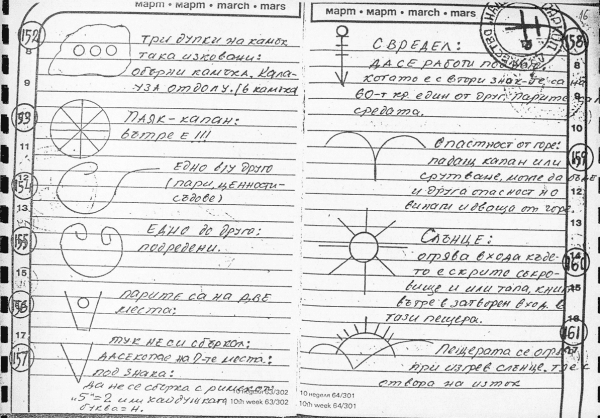 март • март • march • mars
152
три дупки на камък
така изковани:
обърни камъка, кала-
уза отдолу. (6 камъка
8
9
153
Паяк-капан:
вътре е!!!
11
154
Едно в/у друго
(пари, ценности-
съдове)
12
13
155
Едно до друго:
подредени.
15
156
Парите са на две
места:
17
157
тук не си сбъркал:
да се копае на 2-те места:
под знака:
да не се сбърка с римската
"5"=2 или хайдушката
буква = Н.
10 неделя 63/302
10th week 63/302
март • март • march • mars
16
158
Свредел:
да се работи под него
когато е с втори знак-те са на
60-т кр. един от друг. Парите
средата.
8
9
10
159
Опастност от горе:
падащ капан или
срутване, може да бъде
и друга опасност но
винаги идваща от горе.
12
13
160
Слънце:
огрява входа къде-
то е скрито съкро-
вище и или тапа,
вътре в затворен вход в
тази пещера.
15
161
Пещерата се
при изгрев слънце,
отвора на изток
10 неделя 64/301
10th week 64/301